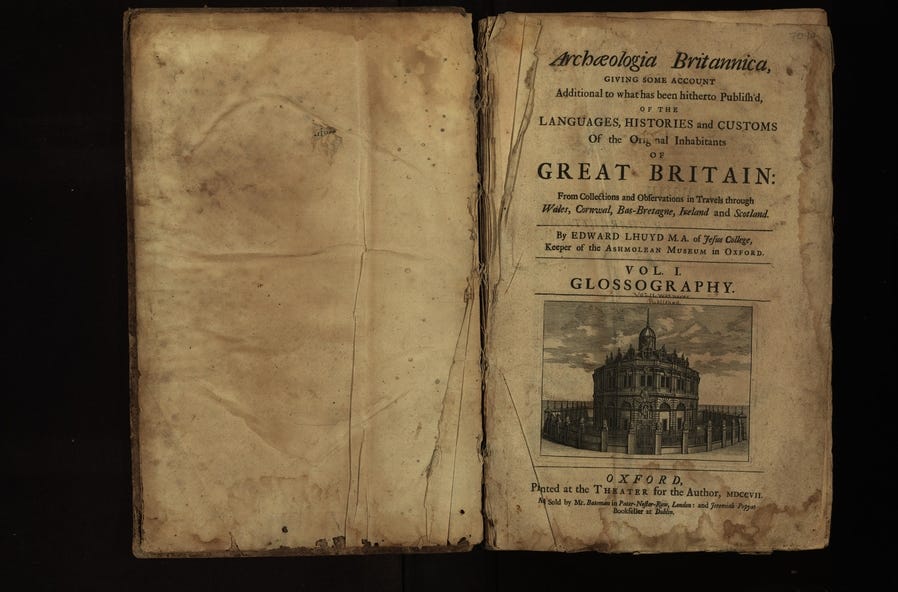 7049
Archæologia Britannica,
GIVING SOME ACCOUNT
Additional to what has been hitherto Publish'd,
OF THE
LANGUAGES, HISTORIES and CUSTOMS
Of the Original Inhabitants
OF
GREAT BRITAIN:
From Collections and Observations in Travels through
Wales, Cornwal, Bas-Bretagne, Ireland and Scotland.
By EDWARD LHUYD M.A. of Jesus College,
Keeper of the ASHMOLEAN MUSEUM in OXFORD.
VOL. I.
GLOSSOGRAPHY.
Vol. II. was never
Published
OXFORD,
Printed at the THEATER for the Author, MDCCVII.
And Sold by Mr. Bateman in Pater-Noster-Row, London: and Jeremiah Pepyat
Bookseller at Dublin.